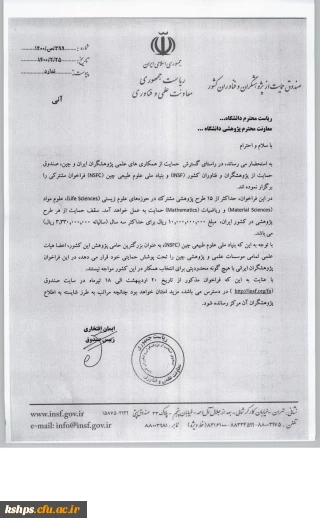 جمهوری اسلامی ایران
ریاست جمهوری
معاونت علمی و فناوری
صندوق حمایت از پژوهشگران و فناوران کشور
شماره: ۲۹۹/ص/۱۴۰۰
تاریخ: ۱۴۰۰/۲/۲۵
پیوست: ندارد
آنی
ریاست محترم دانشگاه...
معاونت محترم پژوهشی دانشگاه ...
با سلام و احترام
به استحضار می رساند، در راستای گسترش حمایت از همکاری های علمی پژوهشگران ایران و چین، صندوق
حمایت از پژوهشگران و فناوران کشور (INSF) و بنیاد ملی علوم طبیعی چین (NSFC) فراخوان مشترکی را
برگزار نموده اند.
در این فراخوان، حداکثر از ۱۵ طرح پژوهشی مشترک در حوزه‌های علوم زیستی (Life Sciences)، علوم مواد
(Material Sciences) و ریاضیات (Mathematics) حمایت به عمل خواهد آمد. سقف حمایت از هر طرح
پژوهشی در کشور ایران، مبلغ ۱۰,۰۰۰,۰۰۰,۰۰۰ ریال برای حداکثر سه سال (سالیانه ۳,۳۳۰,۰۰۰,۰۰۰ ریال)
می باشد.
با توجه به این که بنیاد ملی علوم طبیعی چین (NSFC)، به عنوان بزرگترین حامی پژوهش این کشور، اعضا هیات
علمی تمامی موسسات علمی و پژوهشی چین را تحت پوشش حمایتی خود قرار می دهد، در این فراخوان
پژوهشگران ایرانی با هیچ گونه محدودیتی برای انتخاب همکار در این کشور مواجه نیستند.
با عنایت به این که فراخوان مذکور از تاریخ ۲۰ اردیبهشت الی ۱۸ تیرماه در سایت صندوق
(http://insf.org/fa) در دسترس می باشد، مزید امتنان خواهد بود چنانچه مراتب به طرز شایسته به اطلاع
پژوهشگران آن مرکز رسانده شود.
ایمان افتخاری
رییس صندوق
www.insf.gov.ir
e-mail: info@insf.gov.ir
kshps.cfu.ac.ir